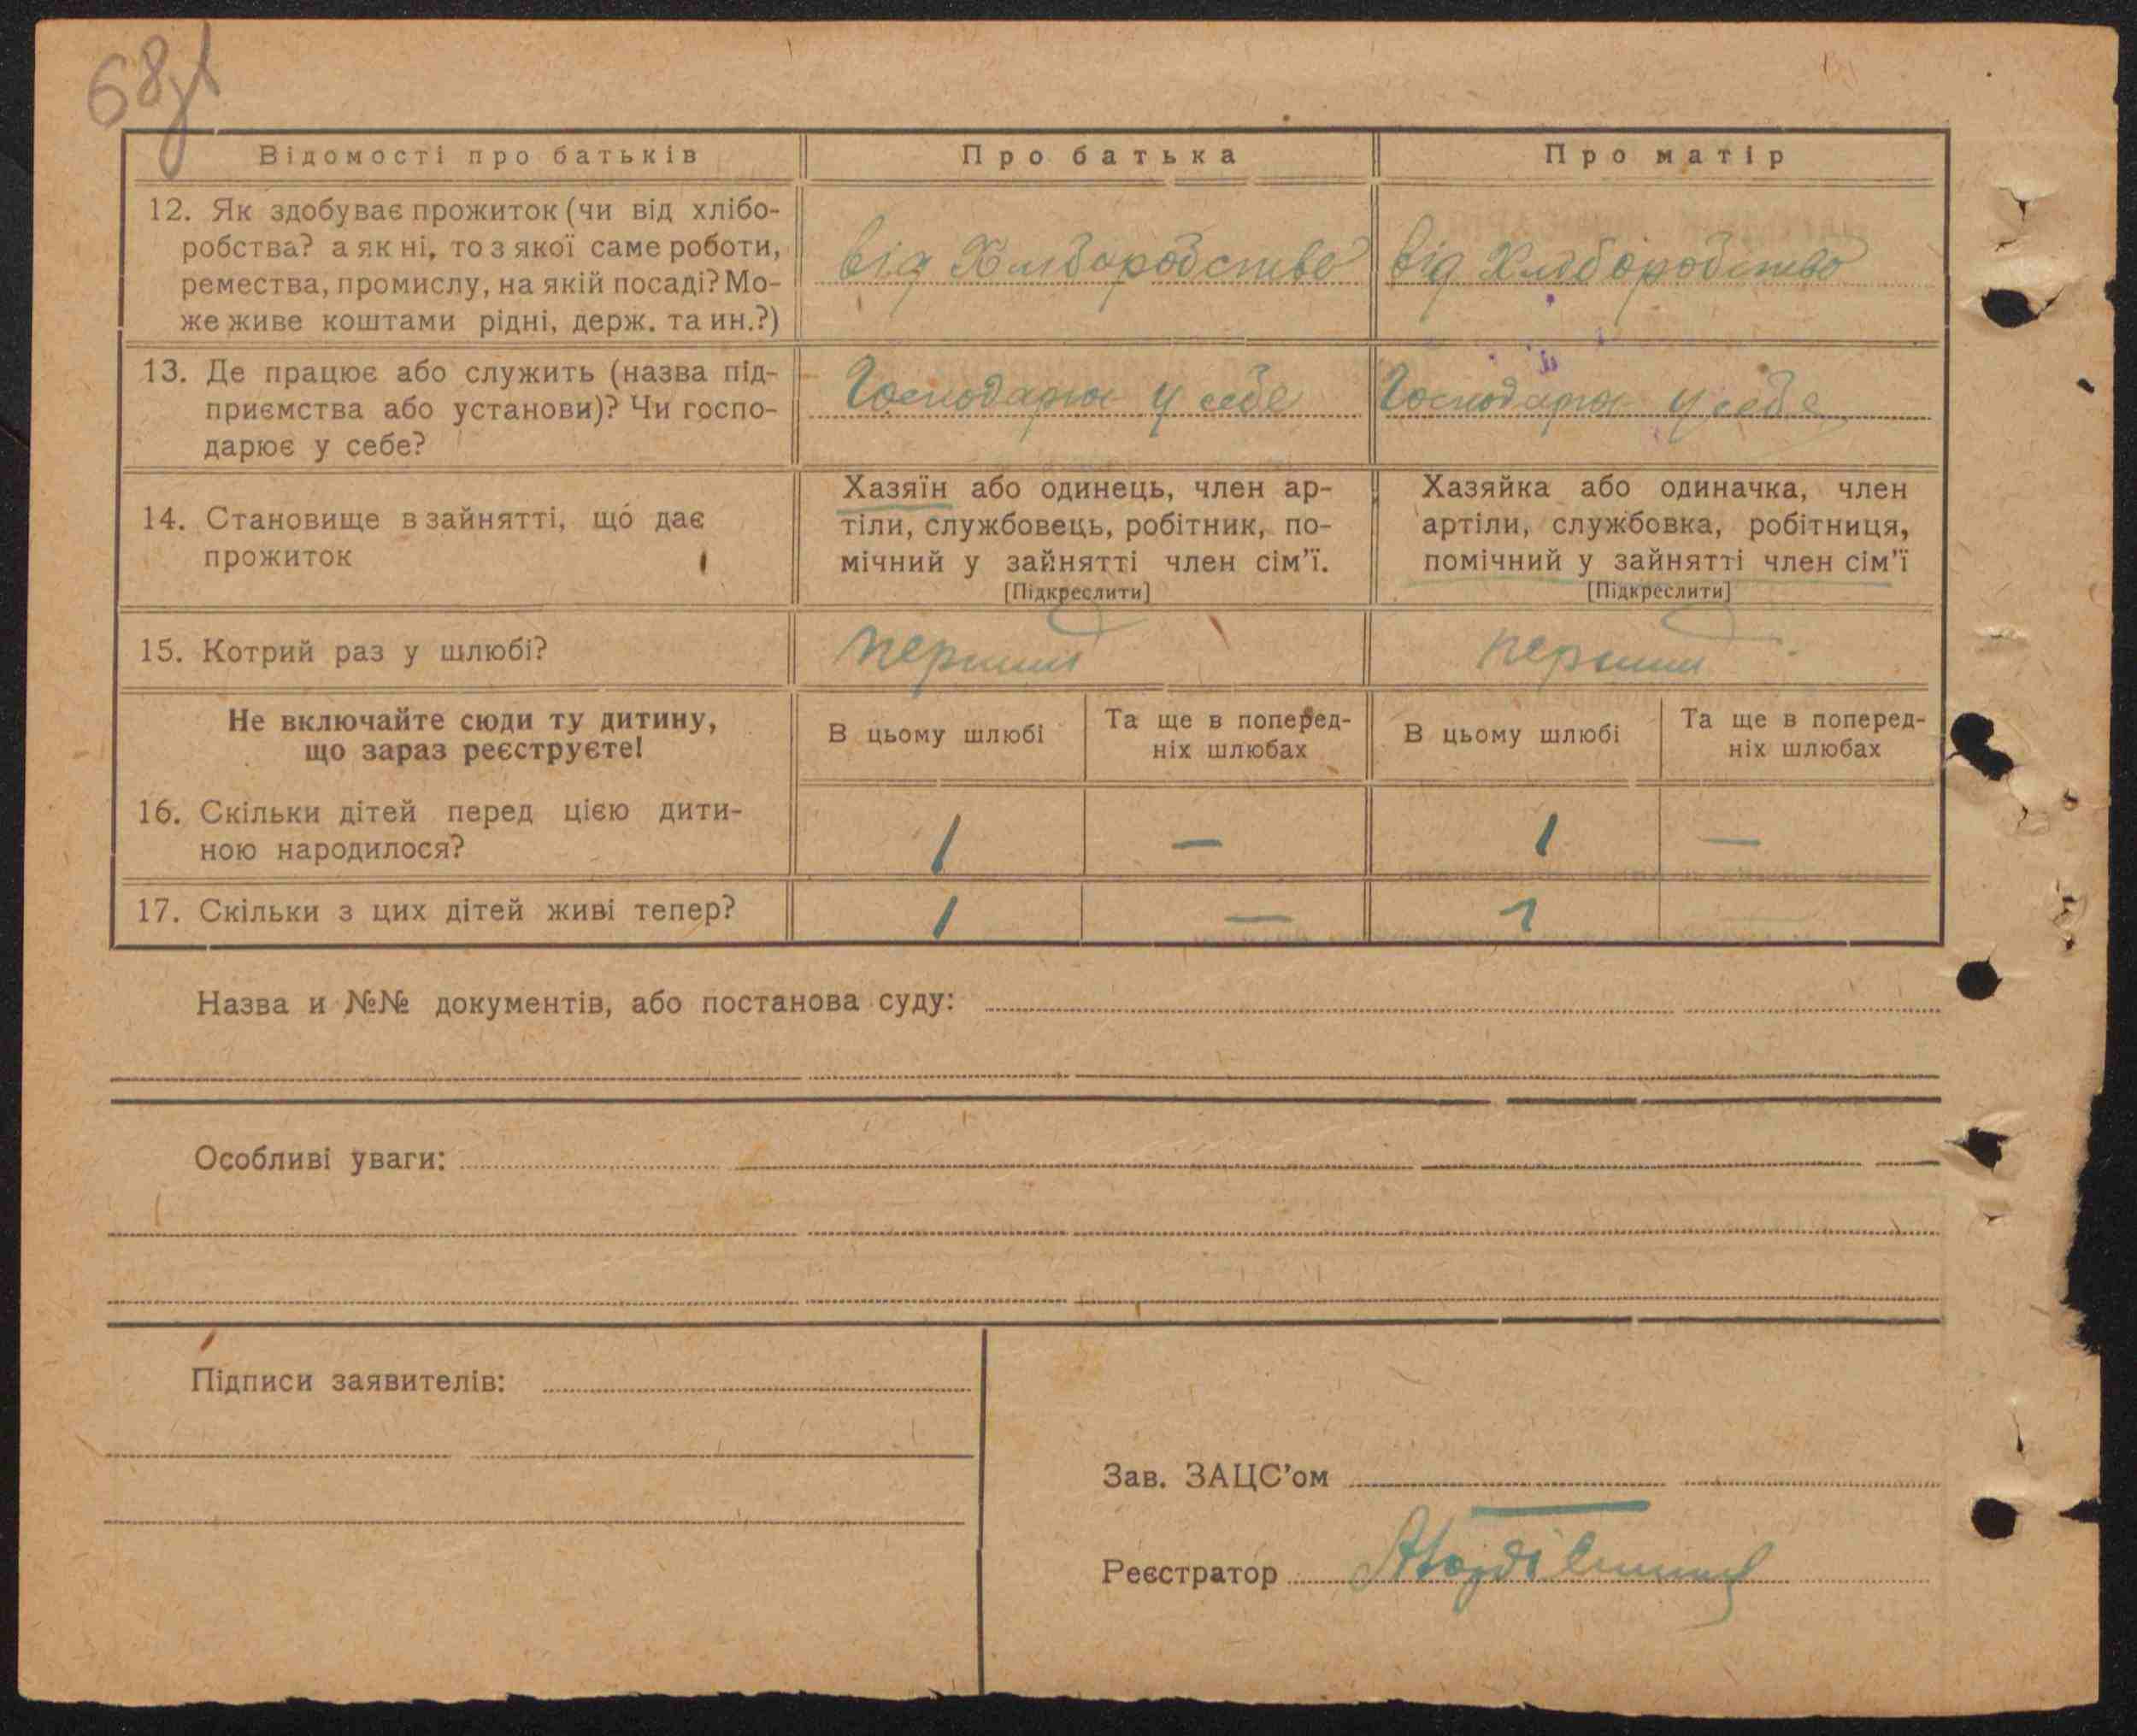 68
Відомості про батьків
Про батька
Про матір
12. Як здобуває прожиток (чи від хлібо-
робства? а як ні, то з якої саме роботи,
ремества, промислу, на якій посаді? Мо-
же живе коштами рідні, держ. та ин.?)
від Хліборобство
від Хліборобство
13. Де працює або служить (назва під-
приємства або установи)? Чи госпо-
дарює у себе?
Господарює у себе
Господарює у себе
14. Становище в зайнятті, що дає
прожиток
Хазяїн або одинець, член ар-
тіли, службовець, робітник, по-
мічний у зайнятті член сім'ї.
[Підкреслити]
Хазяйка або одиначка, член
артіли, службовка, робітниця,
помічний у зайнятті член сім'ї
[Підкреслити]
15. Котрий раз у шлюбі?
перший
перший
Не включайте сюди ту дитину,
що зараз реєструєте!
В цьому шлюбі
Та ще в поперед-
ніх шлюбах
В цьому шлюбі
Та ще в поперед-
ніх шлюбах
16. Скільки дітей перед цією дити-
ною народилося?
1
—
1
—
17. Скільки з цих дітей живі тепер?
1
—
1
Назва и №№ документів, або постанова суду:
Особливі уваги:
Підписи заявителів:
Зав. ЗАЦС'ом
—
Реєстратор